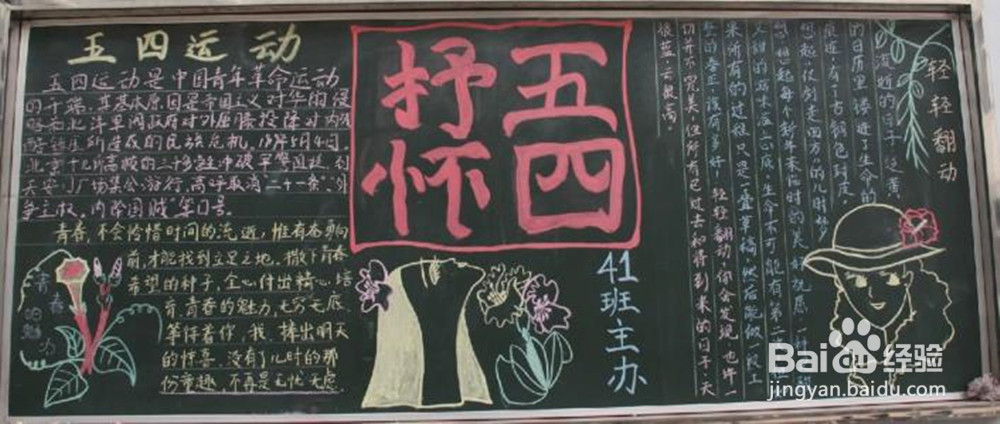 五四运动
五四运动是中国青年革命运动
的开端,其基本原因是帝国主义对华的侵
略和北洋军阀政府对外屈膝投降对内
所造成的民族危机,1919年5月4日,
北京十几所高校的三千多学生冲破军警阻挠,
天安门广场集会游行,高呼取消"二十一条"外
争主权,内除国贼等口号。
青春,不会怜惜时间的流逝,惟有奋勇向
前,才能找到立足之地。撒下青春
希望的种子,全心付出精心培
育,青春的魅力,无穷无底
等待着你,我,捧出明天
的惊喜,没有了儿时的那
份童趣,不再是无忧无虑
青春的魅力
五四
抒怀
41班主办
轻轻翻动
流逝的日子
的日历里镂进了生命的
痕迹,有一古铜色
想起每个新年来临时的美好祝愿
又甜的
味底上心底,生命不可能有第二
果所有的过程只是一叠草稿,然后能做
的春 该有多好!轻轻翻动,你会发现,也许一
切并不完美,但所有已过去和将到来的日子,天
很蓝,云很高。
Baidu经验
jingyan.baidu.com